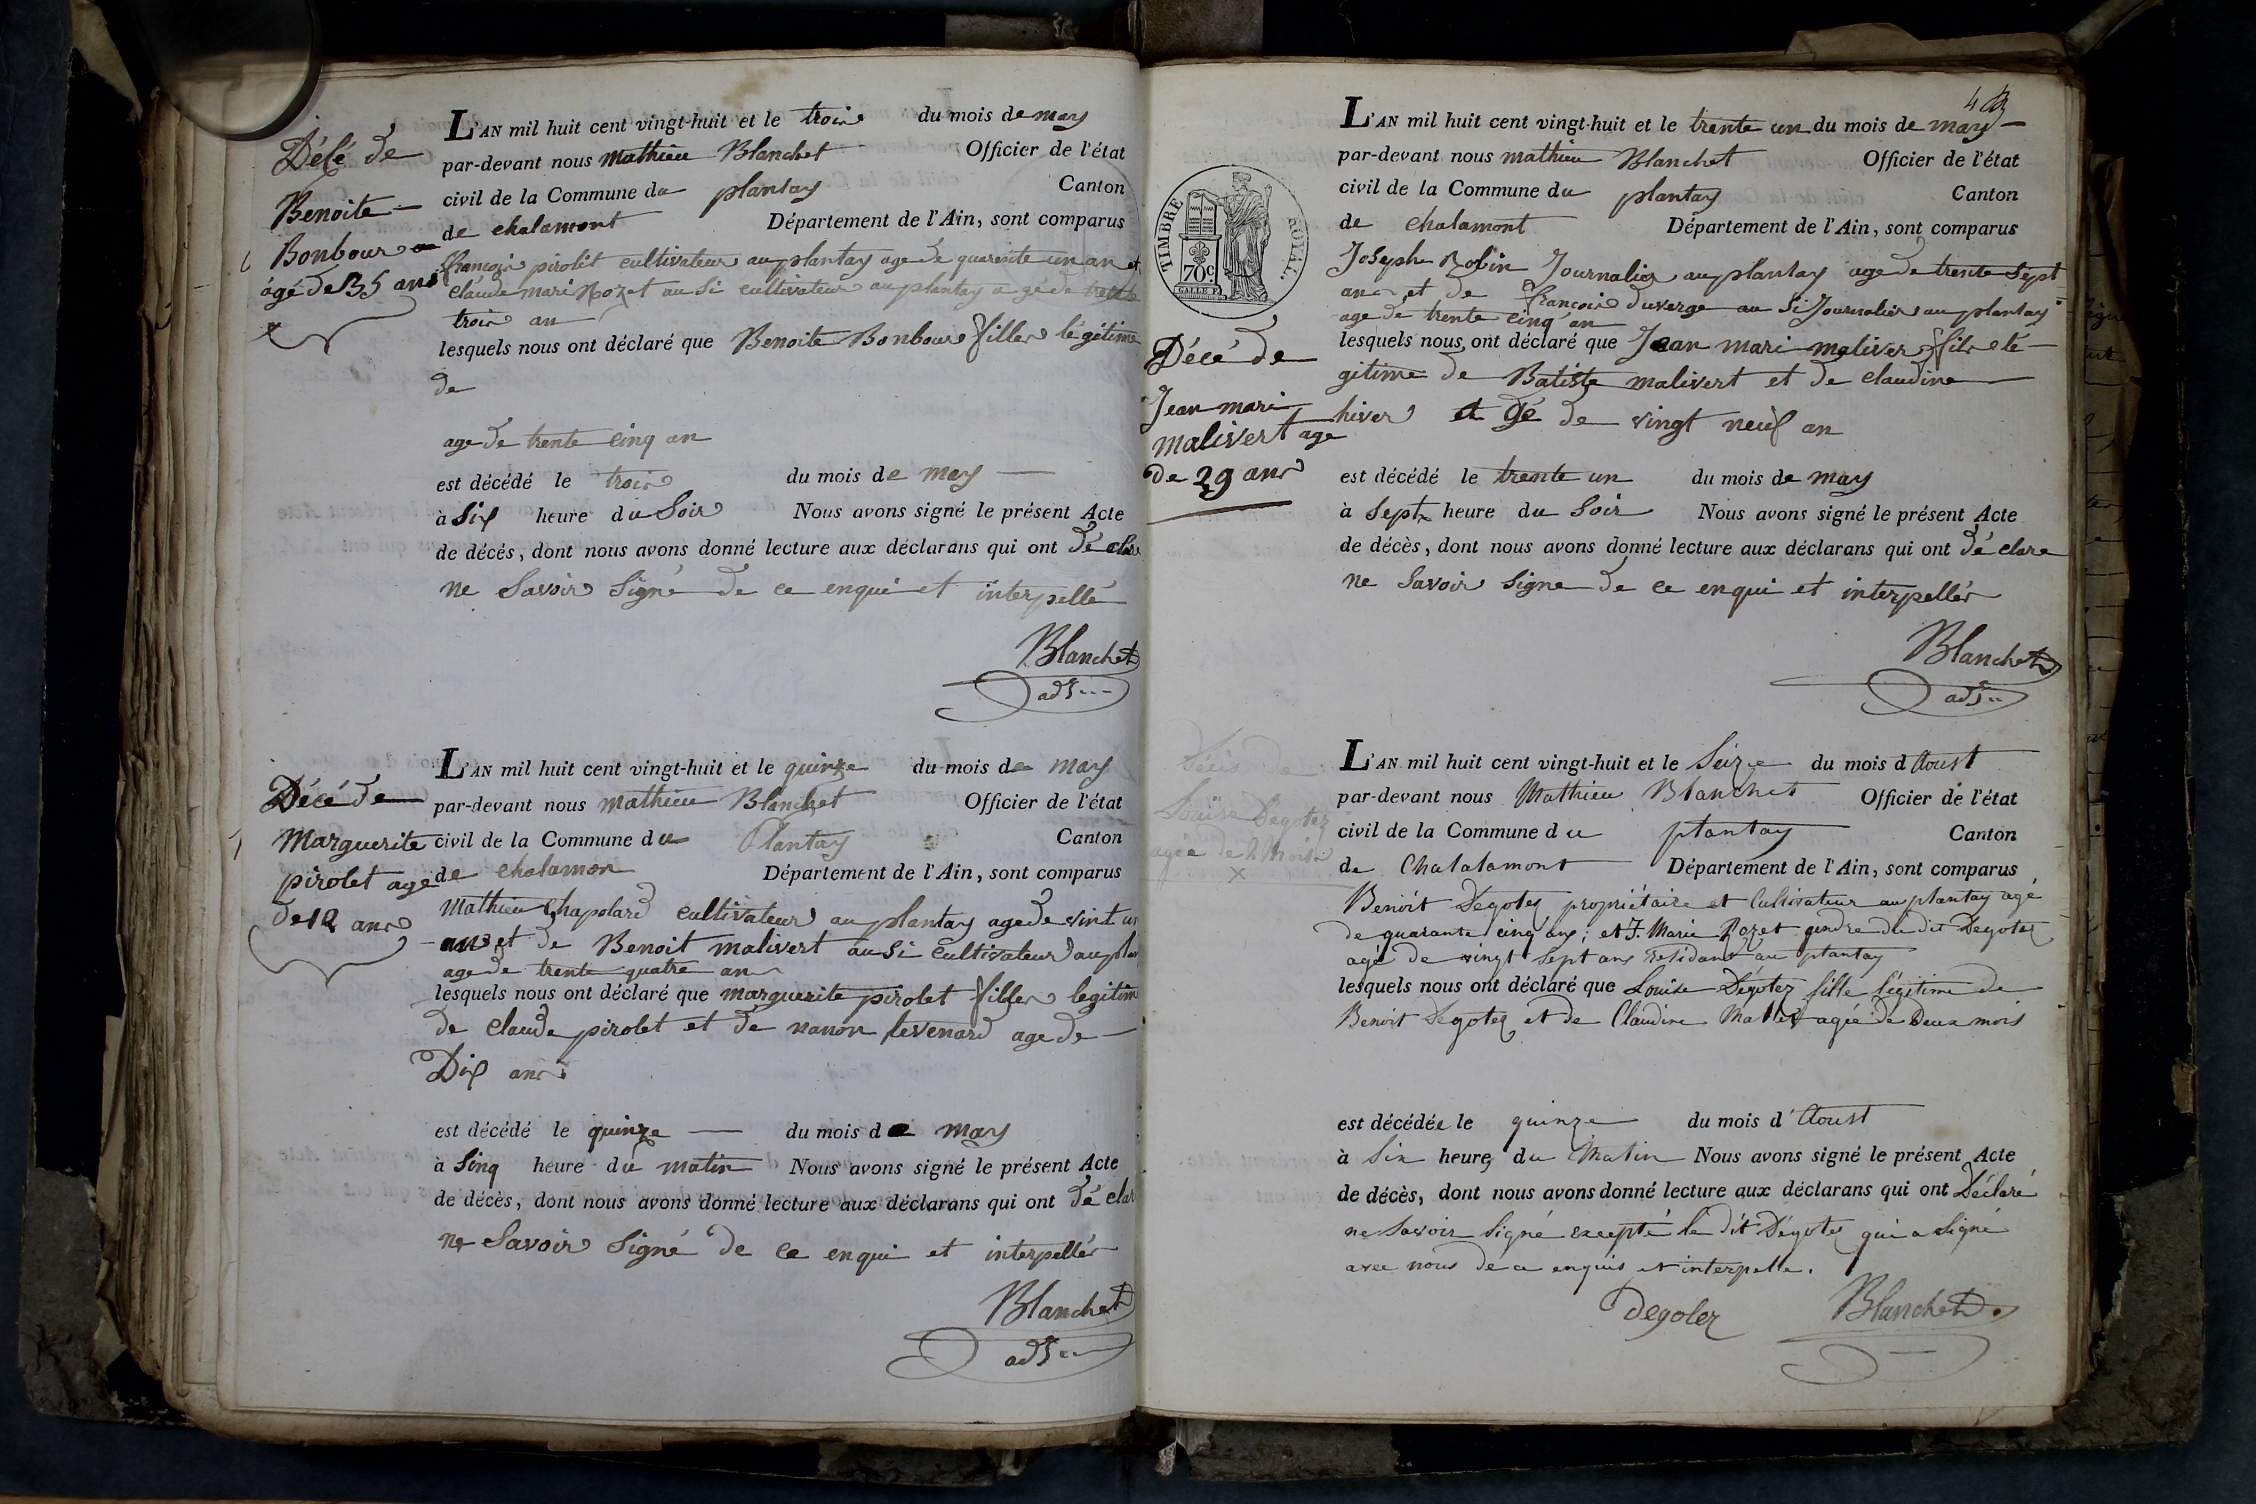 Décé de
Benoite
Bonbour
agé de 35 ans
L'AN mil huit cent vingt-huit et le trois du mois de may
par-devant nous mathieu Blanchet Officier de l'état
civil de la Commune du plantay Canton
de chalamont Département de l'Ain, sont comparus
françois pirolit cultivateur au plantay age de quarente un an et
claude mari Rozet au si cultivateur au plantay a gé de trente
trois an
lesquels nous ont déclaré que Benoite Bonbour filler légitime
de
age de trente cinq an
est décédé le trois du mois de may
à Six heure du Soir Nous avons signé le présent Acte
de décés, dont nous avons donné lecture aux déclarans qui ont dé clare
ne Savoir Signé de ce enqui et interpellé
Blanchet
adj
Décé de
Marguerite
pirolet age
de 12 ans
L'AN mil huit cent vingt-huit et le quinze du mois de may
par-devant nous mathieu Blanchet Officier de l'état
civil de la Commune du Plantay Canton
de chalamon Département de l'Ain, sont comparus
Mathieu Chapolard cultivateur au plantay age de vint un
ans et de Benoit malivert au si cultivateur au plan
age de trente quatre ans
lesquels nous ont déclaré que marguerite pirolet filler legitim
de claude pirolet et de nanon levenard age de
Dix ans
est décédé le quinze du mois de may
à Sinq heure du matin Nous avons signé le présent Acte
de décès, dont nous avons donné lecture aux déclarans qui ont dé clar
ne Savoir Signé de ce enqui et interpellér
Blanchet
adj
TIMBRE ROYAL
70c
Décé de
Jean mari
malivert age
de 29 ans
L'AN mil huit cent vingt-huit et le trente un du mois de may
par-devant nous mathieu Blanchet Officier de l'état
civil de la Commune du plantay Canton
de chalamont Département de l'Ain, sont comparus
Joseph Robin Journalier au plantay age de trente Sept
an et de françois duverge au Si Journalier au plantay
age de trente cinq an
lesquels nous ont déclaré que Jean mari maliver fils lé
gitime de Batiste malivert et de claudine
hiver et Gé de vingt neuf an
est décédé le trente un du mois de may
à Sept heure du Soir Nous avons signé le présent Acte
de décès, dont nous avons donné lecture aux déclarans qui ont dé clare
ne Savoir Signe de ce enqui et interpellér
Blanchet
adj
Décès de
Louise Degotez
agée de 2 Mois
X
L'AN mil huit cent vingt-huit et le Seize du mois d'Aoust
par-devant nous Mathieu Blanchet Officier de l'état
civil de la Commune du plantay Canton
de Chalalamont Département de l'Ain, sont comparus
Benoit Degotez propriétaire et Cultivateur au plantay agé
de quarante cinq ans; et J. Marie Rozet gendre du dit Degotez
agé de vingt Sept ans résidant au plantay
lesquels nous ont déclaré que Louise Degotez fille légitime de
Benoit Degotez et de Claudine agée de Deux mois
est décédée le quinze du mois d'Aoust
à Six heure du Matin Nous avons signé le présent Acte
de décès, dont nous avons donné lecture aux déclarans qui ont Déclaré
ne Savoir Signé excepté le dit Degotez qui a Signé
avec nous de ce enquis et interpelle.
degolez Blanchet